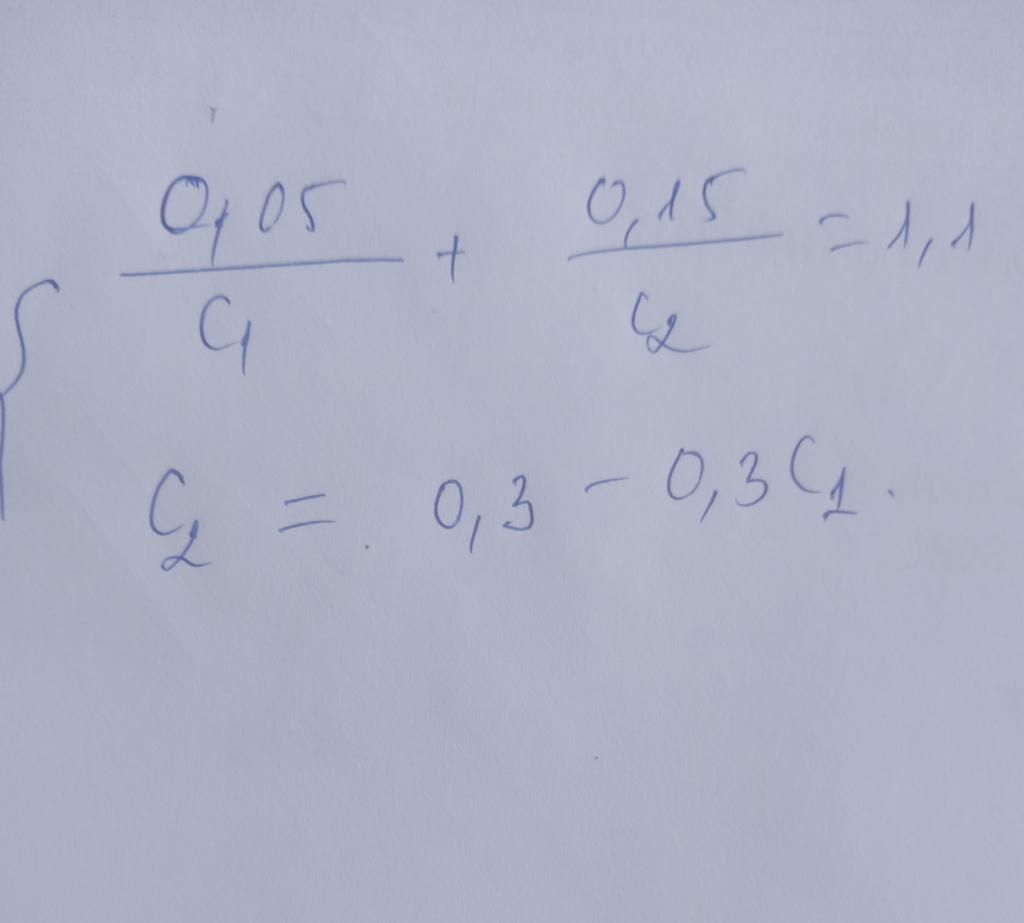 { 0,05/C₁ + 0,15/C₂ = 1,1
C₂ = 0,3 - 0,3C₁.